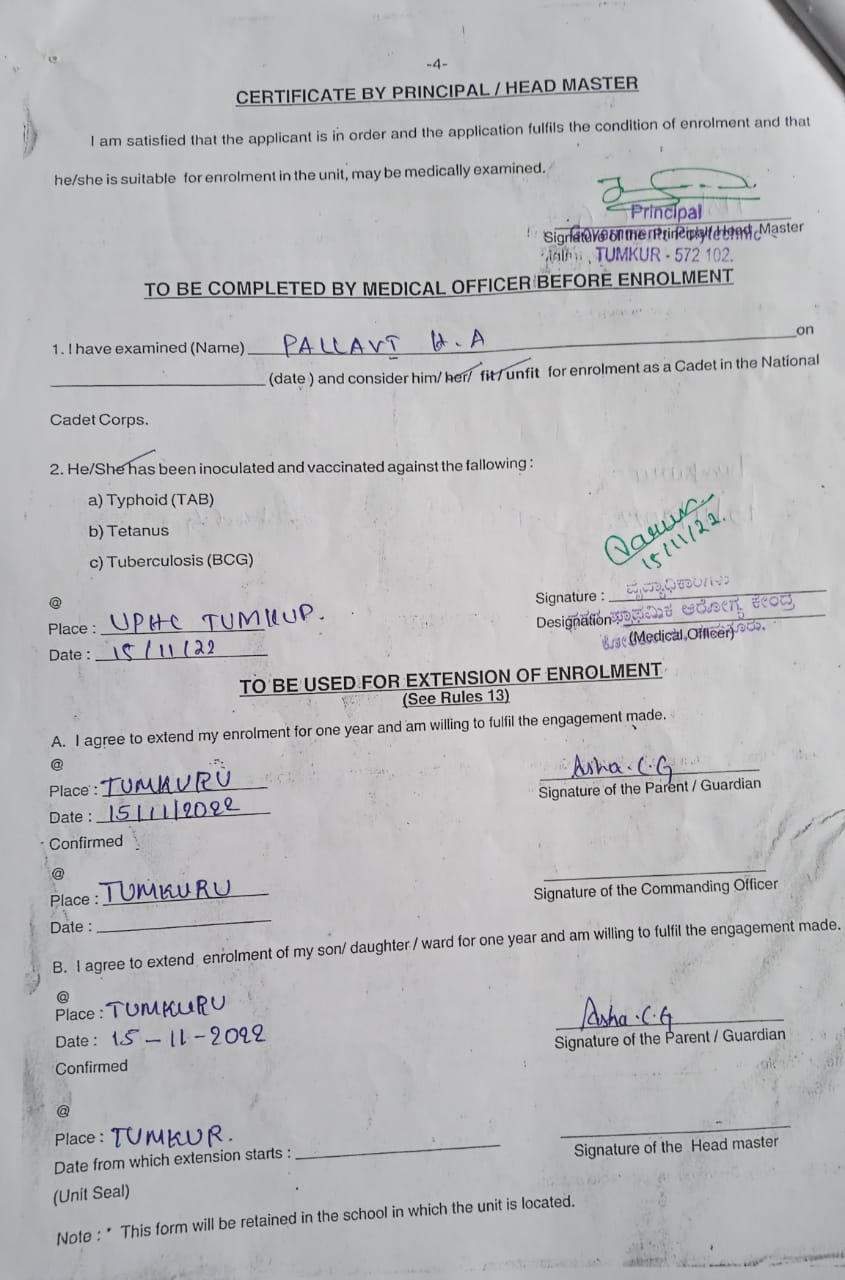 -4-
CERTIFICATE BY PRINCIPAL / HEAD MASTER
I am satisfied that the applicant is in order and the application fulfils the condition of enrolment and that
he/she is suitable for enrolment in the unit, may be medically examined.
Principal
Signature of the Principal/ Head Master
Government Polytechnic
TUMKUR - 572 102.
TO BE COMPLETED BY MEDICAL OFFICER BEFORE ENROLMENT
1. I have examined (Name) PALLAVI H.A on
(date ) and consider him/ her/ fit/ unfit for enrolment as a Cadet in the National
Cadet Corps.
2. He/She has been inoculated and vaccinated against the fallowing :
a) Typhoid (TAB)
b) Tetanus
c) Tuberculosis (BCG)
15/11/22.
@
Signature :
Place : UPHC TUMKUR.
Designation ಪ್ರಾಥಮಿಕ ಆರೋಗ್ಯ ಕೇಂದ್ರ
Date : 15/11/22
(Medical Officer)
TO BE USED FOR EXTENSION OF ENROLMENT
(See Rules 13)
A. I agree to extend my enrolment for one year and am willing to fulfil the engagement made.
@
Place : TUMKURU
Asha.C.G
Signature of the Parent / Guardian
Date : 15/11/2022
Confirmed
@
Place : TUMKURU
Signature of the Commanding Officer
Date :
B. I agree to extend enrolment of my son/ daughter / ward for one year and am willing to fulfil the engagement made.
@
Place : TUMKURU
Asha.C.G
Date : 15-11-2022
Signature of the Parent / Guardian
Confirmed
@
Place : TUMKUR.
Date from which extension starts :
Signature of the Head master
(Unit Seal)
Note : * This form will be retained in the school in which the unit is located.